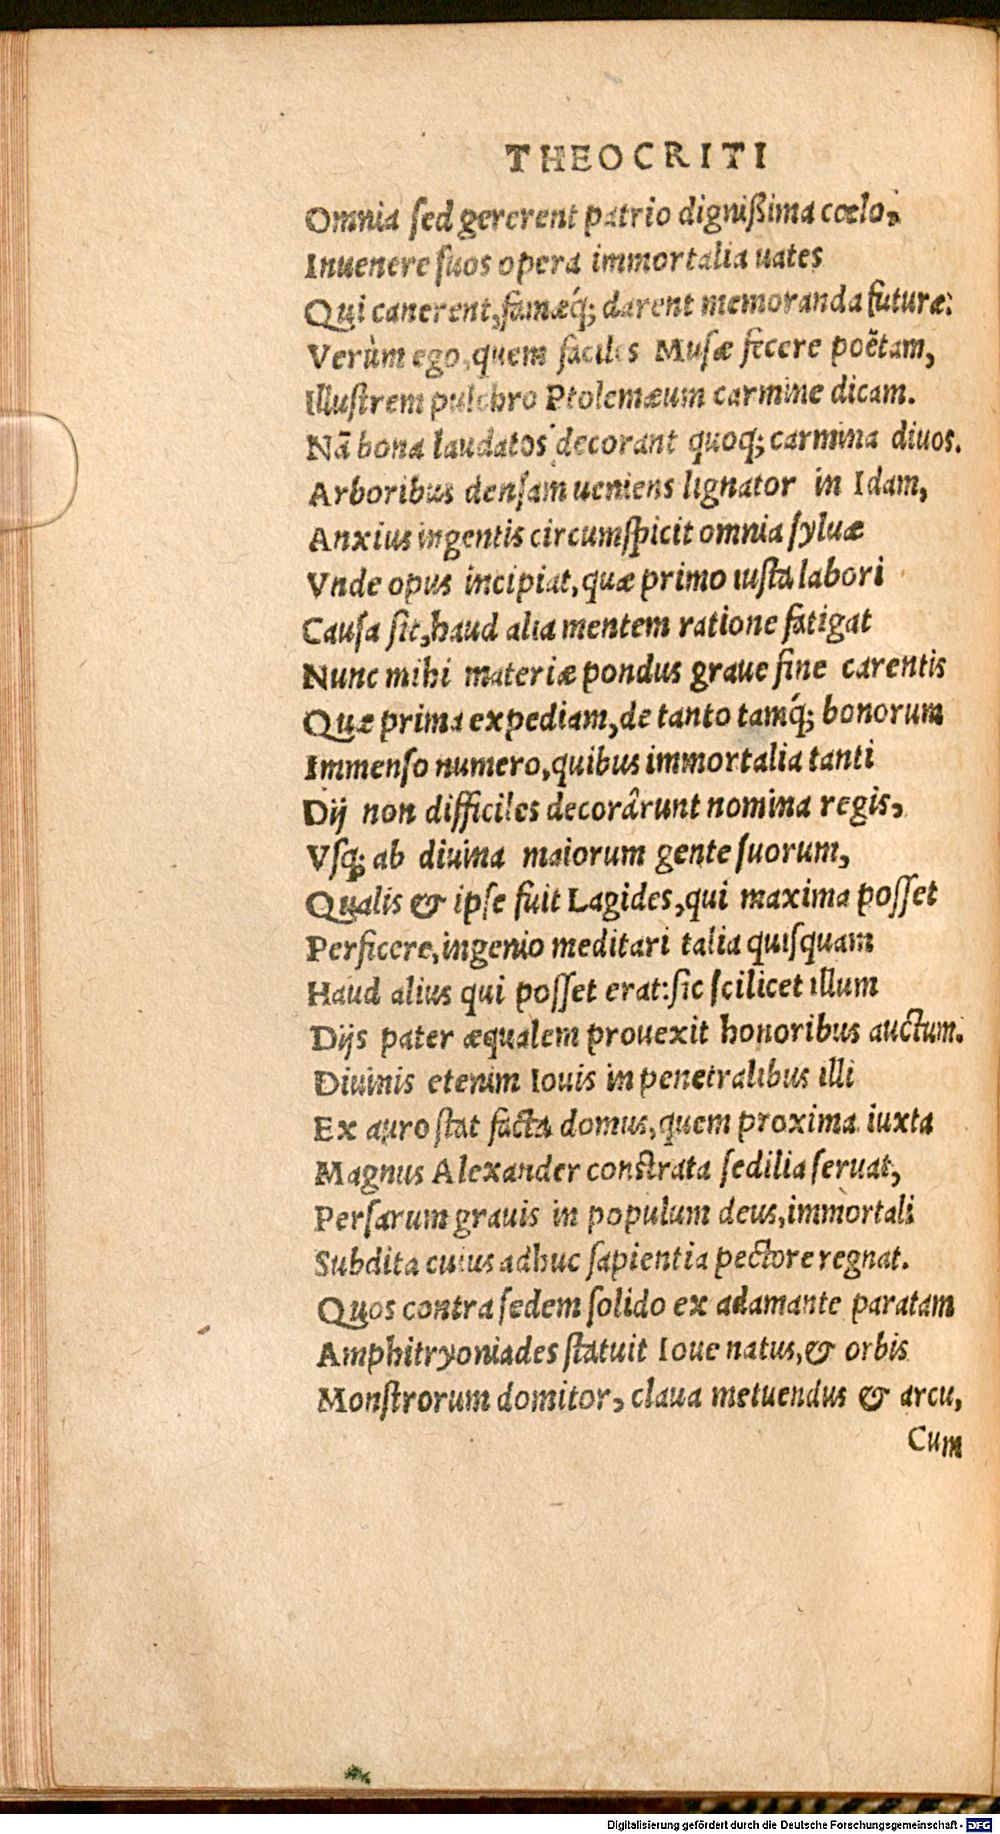 THEOCRITI
Omnia ſed gererent patrio digniſſima cœlo,
Inuenere ſuos opera immortalia uates
Qui canerent, famæq́; darent memoranda futuræ:
Verùm ego, quem faciles Muſæ fecere poëtam,
Illuſtrem pulchro Ptolemæum carmine dicam.
Nã bona laudatos decorant quoq; carmina diuos.
Arboribus denſam ueniens lignator in Idam,
Anxius ingentis circumſpicit omnia ſyluæ
Vnde opus incipiat, quæ primo iuſta labori
Cauſa ſit, haud alia mentem ratione fatigat
Nunc mihi materiæ pondus graue fine carentis
Quæ prima expediam, de tanto tamq́; bonorum
Immenſo numero, quibus immortalia tanti
Dij non difficiles decorârunt nomina regis,
Vſq; ab diuina maiorum gente ſuorum,
Qualis & ipſe fuit Lagides, qui maxima poſſet
Perficere, ingenio meditari talia quiſquam
Haud alius qui poſſet erat: ſic ſcilicet illum
Dijs pater æqualem prouexit honoribus auctum.
Diuinis etenim Iouis in penetralibus illi
Ex auro ſtat facta domus, quem proxima iuxta
Magnus Alexander conſtrata ſedilia ſeruat,
Perſarum grauis in populum deus, immortali
Subdita cuius adhuc ſapientia pectore regnat.
Quos contra ſedem ſolido ex adamante paratam
Amphitryoniades ſtatuit Ioue natus, & orbis
Monſtrorum domitor, claua metuendus & arcu,
Cum
Digitalisierung gefördert durch die Deutsche Forschungsgemeinschaft - DFG